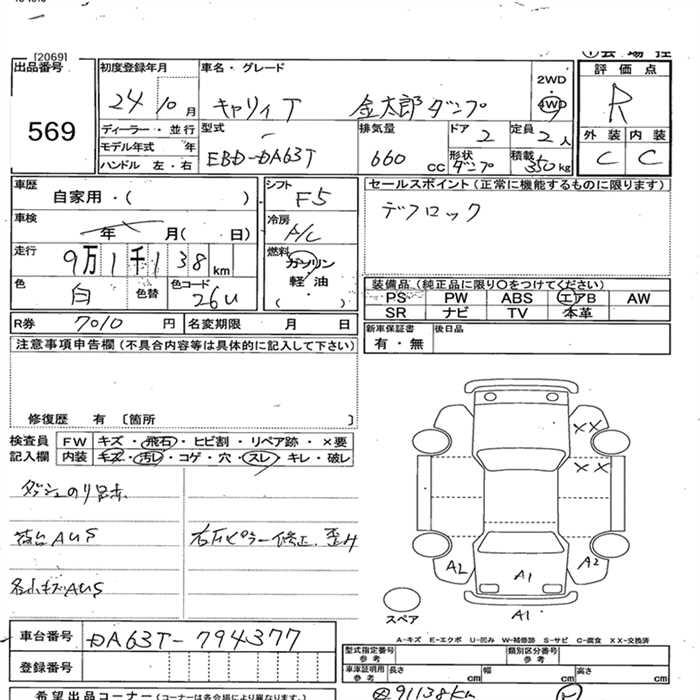 [2069]
出品番号 569
初度登録年月 24 10 月
車名・グレード キャリィT 金太郎ダンプ
2WD
4WD
評価点 R
外装 内装
C C
ディーラー・並行
モデル年式 年
ハンドル 左・右
型式 EBD-DA63T
排気量 660 CC
ドア 2 定員 2人
形状 ダンプ 積載 350kg
車歴 自家用・( )
車検 年 月( 日)
走行 9万1千138km
色 白 色替 色コード 26U
シフト F5
冷房 A/C
燃料 ガソリン
軽油
( )
セールスポイント(正常に機能するものに限ります)
デフロック
装備品(純正品に限り○をつけてください)
PS PW ABS エアB AW
SR ナビ TV 本革
R券 7010 円 名変期限 月 日
新車保証書 有・無 後日品
注意事項申告欄(不具合内容等は具体的に記入して下さい)
修復歴 有 〔箇所 〕
検査員 FW キズ・飛石・ヒビ割・リペア跡・×要
記入欄 内装 キズ・汚レ・コゲ・穴・スレ・キレ・破レ
ダッシュのり跡
荷台AUS 右Rピラー修正、歪み
各小キズAUS
XX
XX
A2 A1 A2
A1
スペア
A-キズ E-エクボ U-凹み W-補修跡 S-サビ C-腐食 XX-交換済
車台番号 DA63T-794377
登録番号
型式指定番号 参考 類別区分番号 参考
車庫証明用 参考 長さ cm 幅 cm 高さ cm
希望出品コーナー(コーナーは各会場により異なります。)
91138km